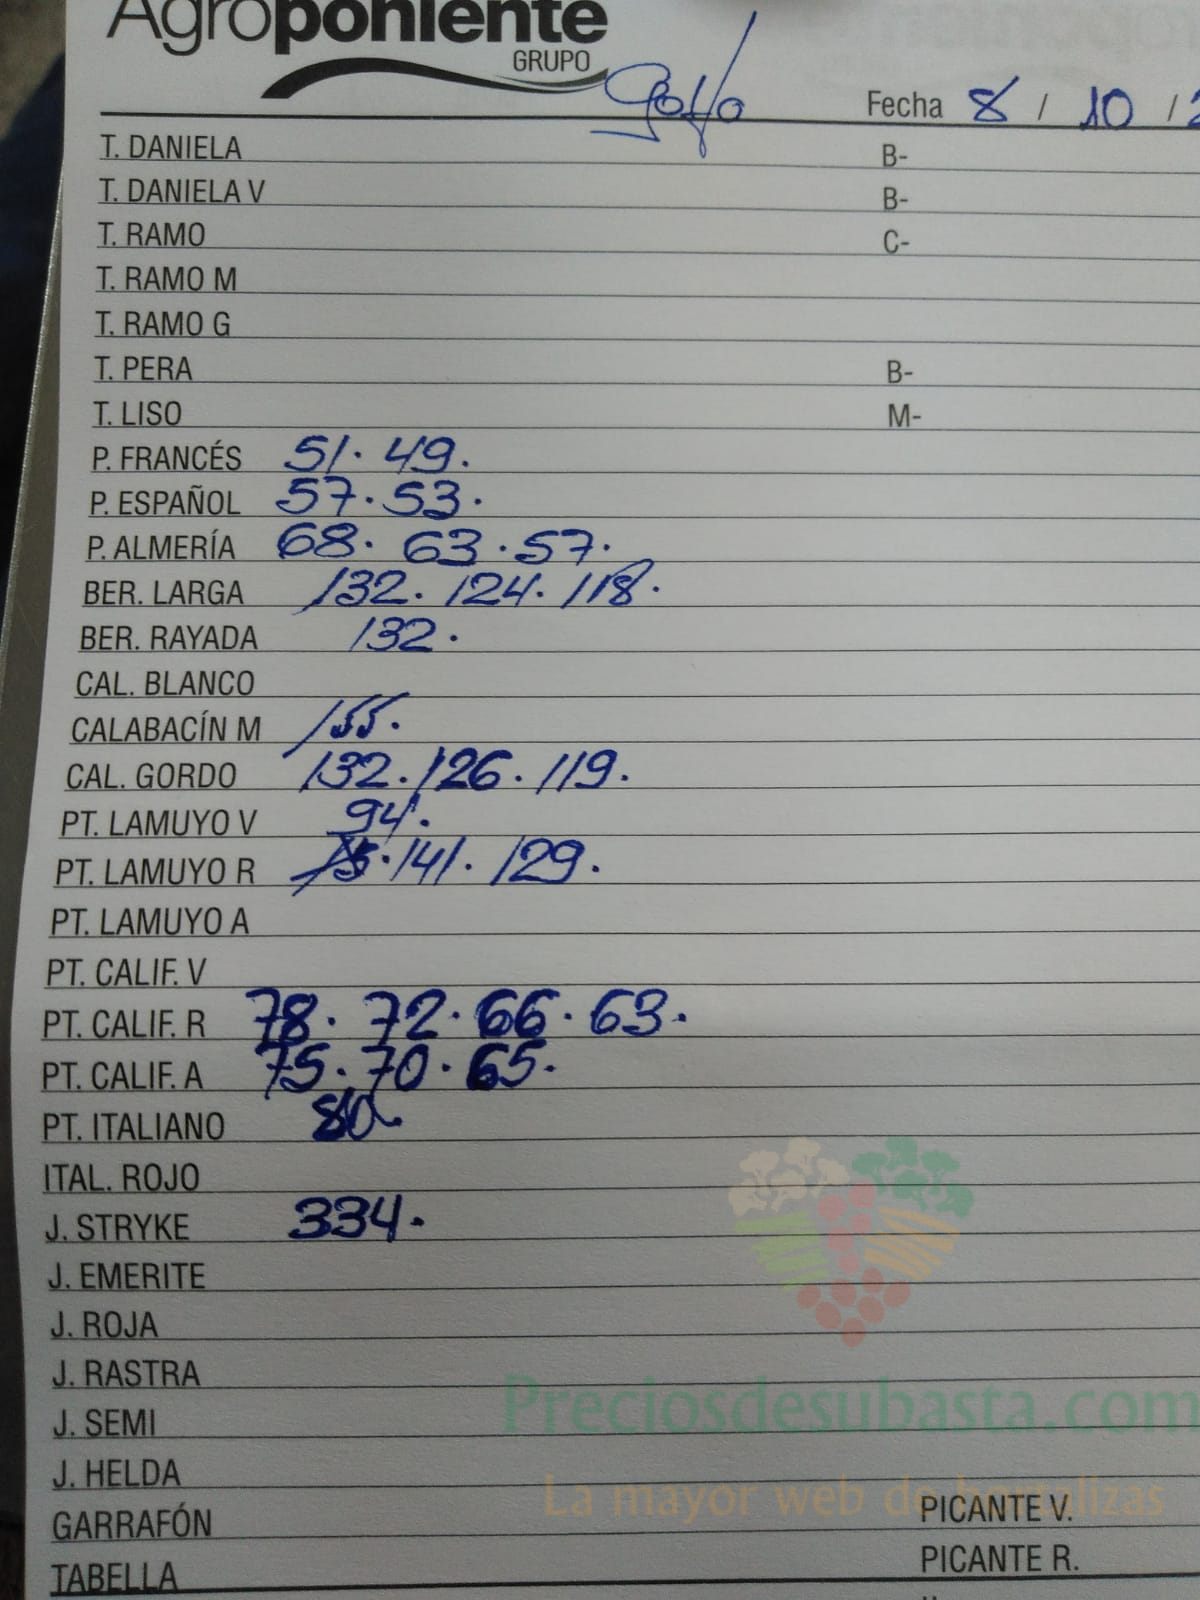 Agroponiente
GRUPO
Golfo Fecha 8 / 10 / 2
T. DANIELA B-
T. DANIELA V B-
T. RAMO C-
T. RAMO M
T. RAMO G
T. PERA B-
T. LISO M-
P. FRANCÉS 51. 49.
P. ESPAÑOL 57. 53.
P. ALMERÍA 68. 63. 57.
BER. LARGA 132. 124. 118.
BER. RAYADA 132.
CAL. BLANCO
CALABACÍN M 155.
CAL. GORDO 132. 126. 119.
PT. LAMUYO V 94.
PT. LAMUYO R 141. 129.
PT. LAMUYO A
PT. CALIF. V
PT. CALIF. R 78. 72. 66. 63.
PT. CALIF. A 75. 70. 65.
PT. ITALIANO 80
ITAL. ROJO
J. STRYKE 334.
J. EMERITE
J. ROJA
J. RASTRA
Preciosdesubasta.com
J. SEMI
J. HELDA
La mayor web de hortalizas
GARRAFÓN PICANTE V.
TABELLA PICANTE R.